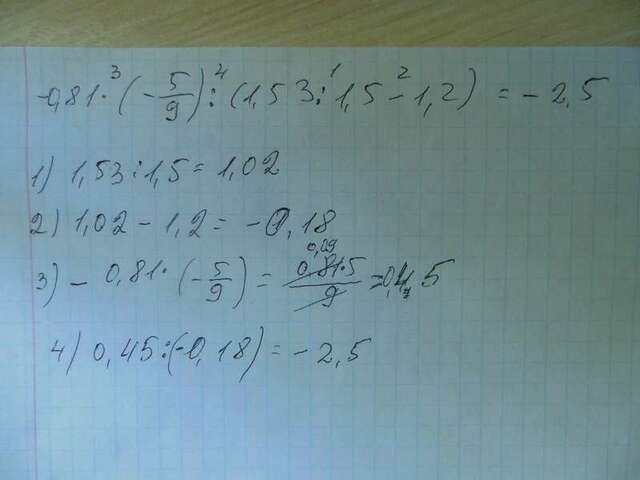 -0,81·(-5/9):(1,53:1,5-1,2) = -2,5
1) 1,53:1,5=1,02
2) 1,02-1,2= -0,18
3) - 0,81·(-5/9) = 0,81·5/9 = 0,45
4) 0,45:(-0,18)= -2,5